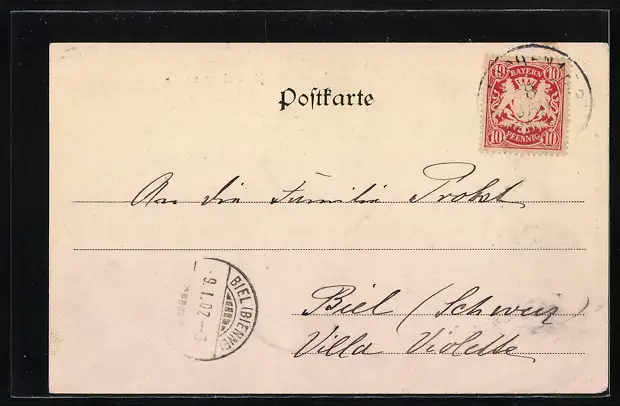 Postkarte
10 10
BAYERN
PFENNIG
10 10
An die Familie Probst
Biel (Schweiz)
Villa Violette
BIEL (BIENNE)
-9.I.02.-3